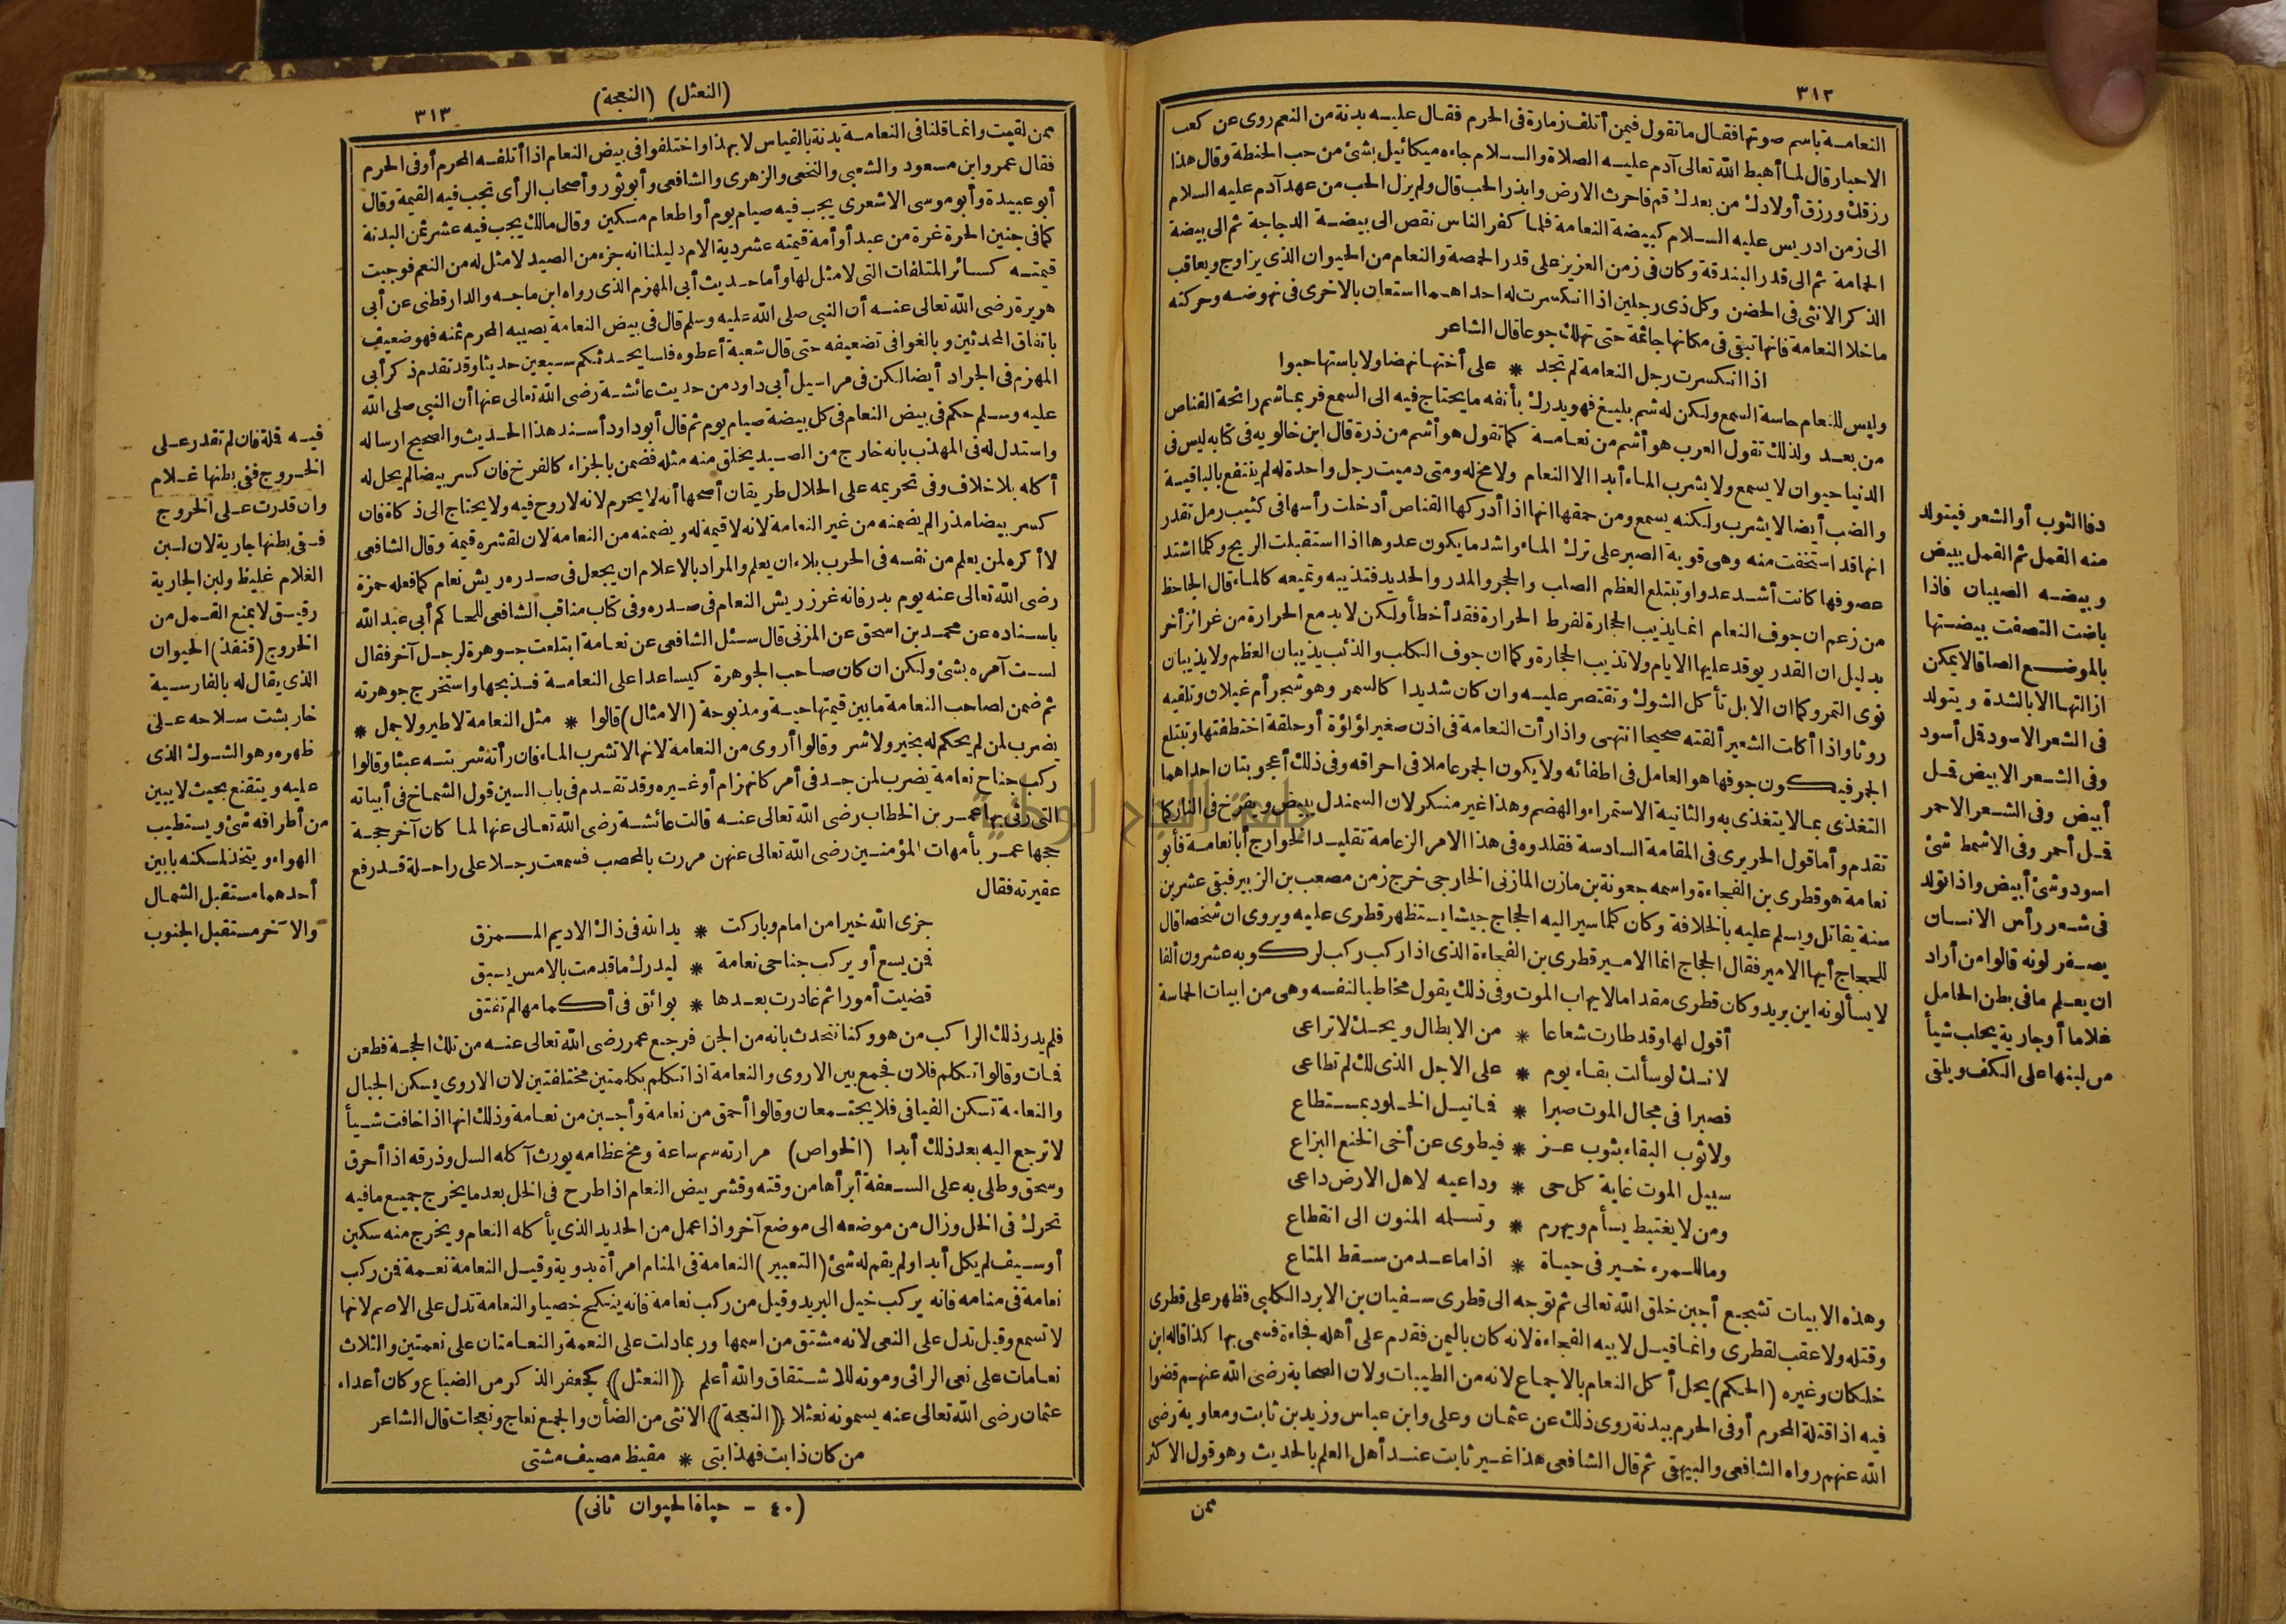 ٣١٢
النعامة باسم صوتها فقال ما تقول فيمن أتلف زمارة فى الحرم فقال عليه بدنة من النعم روى عن كعب
الاحبار قال لما أهبط الله تعالى آدم عليه الصلاة والسلام جاءه ميكائيل بشئ من حب الحنطة وقال هذا
رزقك ورزق أولادك من بعدك قم فاحرث الارض وابذر الحب قال ولم يزل الحب من عهد آدم عليه السلام
الى زمن ادريس عليه السلام كبيضة النعامة فلما كفر الناس نقص الى بيضة الدجاجة ثم الى بيضة
الحمامة ثم الى قدر البندقة وكان فى زمن العزيز على قدر الحمصة والنعام من الحيوان الذى يزاوج ويعاقب
الذكر الانثى فى الحضن وكل ذى رجلين اذا انكسرت له احداهما استعان بالاخرى فى نهوضه وحركته
ما خلا النعامة فانها تبقى فى مكانها جاثمة حتى تهلك جوعا قال الشاعر
اذا انكسرت رجل النعامة لم تجد * على أختها نهضا ولا باستها حبوا
وليس للنعام حاسة السمع ولكن له شم بليغ فهو يدرك بأنفه ما يحتاج فيه الى السمع فربما شم رائحة القناص
من بعد ولذلك تقول العرب هو أشم من نعامة كما تقول هو أشم من ذرة قال ابن خالويه فى كتابه ليس فى
الدنيا حيوان لا يسمع ولا يشرب الماء أبدا الا النعام ولا مخ له ومتى دميت رجل واحدة له لم ينتفع بالباقية
والضب أيضا لا يشرب ولكنه يسمع ومن حمقها انها اذا أدركها القناص أدخلت رأسها فى كثيب رمل تقدر
انها قد استخفت منه وهى قوية الصبر على ترك الماء واشد ما يكون عدوها اذا استقبلت الريح وكلما اشتد
عصوفها كانت أشد عدوا وتبتلع العظم الصلب والحجر والمدر والحديد فتذيبه وتميعه كالماء قال الجاحظ
من زعم ان جوف النعام انما يذيب الحجارة لفرط الحرارة فقد أخطأ ولكن لا بد مع الحرارة من غرائز أخر
بدليل ان القدر يوقد عليها الايام ولا تذيب الحجارة وكما ان جوف الكلب والذئب يذيبان العظم ولا يذيبان
نوى التمر وكما ان الابل تأكل الشوك وتقتصر عليه وان كان شديدا كالسمر وهو شجر أم غيلان وتلقيه
روثا واذا أكلت الشعير ألقته صحيحا انتهى واذا رأت النعامة فى اذن صغير لؤلؤة أو حلقة اختطفتها وتبتلع
الجمر فيكون جوفها هو العامل فى اطفائه ولا يكون الجمر عاملا فى احراقه وفى ذلك أعجوبتان احداهما
التغذى بما لا يتغذى به والثانية الاستمراء والهضم وهذا غير منكر لان السمندل يبيض ويفرخ فى النار كما
تقدم وأما قول الحريرى فى المقامة السادسة فقلدوه فى هذا الامر الزعامة تقليد الخوارج أبا نعامة فأبو
نعامة هو قطرى بن الفجاءة واسمه جعونة بن مازن المازنى الخارجى خرج زمن مصعب بن الزبير فبقى عشرين
سنة يقاتل ويسلم عليه بالخلافة وكان كلما سير اليه الحجاج جيشا يستظهر قطرى عليه ويروى ان شخصا قال
للحجاج أيها الامير فقال الحجاج انما الامير قطرى بن الفجاءة الذى اذا ركب ركب لركوبه عشرون ألفا
لا يسألونه اين يريد وكان قطرى مقداما لا يهاب الموت وفى ذلك يقول مخاطبا لنفسه وهى من ابيات الحماسة
أقول لها وقد طارت شعاعا * من الابطال ويحك لا تراعى
لانك لو سألت بقاء يوم * على الاجل الذى لك لم تطاعى
فصبرا فى مجال الموت صبرا * فما نيل الخلود بمستطاع
ولا ثوب البقاء بثوب عز * فيطوى عن أخى الخنع اليراع
سبيل الموت غاية كل حى * وداعيه لاهل الارض داعى
ومن لا يغتبط يسأم ويهرم * وتسلمه المنون الى انقطاع
وما للمرء خير فى حياة * اذا ما عد من سقط المتاع
وهذه الابيات تشجع أجبن خلق الله تعالى ثم توجه الى قطرى سفيان بن الابرد الكلبى فظهر على قطرى
وقتله ولا عقب لقطرى وانما قيل لابيه الفجاءة لانه كان باليمن فقدم على أهله فجاءة فسمى بها كذا قاله ابن
خلكان وغيره (الحكم) يحل أكل النعام بالاجماع لانه من الطيبات ولان الصحابة رضى الله عنهم قضوا
فيه اذا قتله المحرم أو فى الحرم ببدنة روى ذلك عن عثمان وعلى وابن عباس وزيد بن ثابت ومعاوية رضى
الله عنهم رواه الشافعى والبيهقى ثم قال الشافعى هذا غير ثابت عند أهل العلم بالحديث وهو قول الاكثر
ممن
دفا الثوب أو الشعر فيتولد
منه القمل ثم القمل يبيض
وبيضه الصيبان فاذا
باضت التصقت بيضتها
بالموضع الصاقا لا يمكن
ازالتها الا بالشدة ويتولد
فى الشعر الاسود قل أسود
وفى الشعر الابيض قمل
أبيض وفى الشعر الاحمر
قمل أحمر وفى الاشمط شئ
اسود وشئ أبيض واذا تولد
فى شعر رأس الانسان
يصفر لونه قالوا من أراد
ان يعلم ما فى بطن الحامل
غلاما أو جارية يحلب شيأ
من لبنها على الكف ويلقى
(النعثل) (النعجة)
٣١٣
ممن لقيت وانما قلنا فى النعامة بدنة بالقياس لا بهذا واختلفوا فى بيض النعام اذا أتلفه المحرم أو فى الحرم
فقال عمر وابن مسعود والشعبى والنخعى والزهرى والشافعى وأبو ثور وأصحاب الرأى تجب فيه القيمة وقال
أبو عبيدة وأبو موسى الاشعرى يجب فيه صيام يوم أو اطعام مسكين وقال مالك يجب فيه عشر ثمن البدنة
كما فى جنين الحرة غرة من عبد أو أمة قيمته عشر دية الام دليلنا انه جزء من الصيد لا مثل له من النعم فوجبت
قيمته كسائر المتلفات التى لا مثل لها وأما حديث أبى المهزم الذى رواه ابن ماجه والدارقطنى عن أبى
هريرة رضى الله تعالى عنه أن النبى صلى الله عليه وسلم قال فى بيض النعامة يصيبه المحرم ثمنه فهو ضعيف
باتفاق المحدثين وبالغوا فى تضعيفه حتى قال شعبة أعطوه فلسا يحدثكم سبعين حديثا وقد تقدم ذكر أبى
المهزم فى الجراد أيضا لكن فى مراسيل أبى داود من حديث عائشة رضى الله تعالى عنها أن النبى صلى الله
عليه وسلم حكم فى بيض النعام فى كل بيضة صيام يوم ثم قال أبو داود أسند هذا الحديث والصحيح ارساله
واستدل له فى المهذب بانه خارج من الصيد يخلق منه مثله فضمن بالجزاء كالفرخ فان كسر بيضا لم يحل له
أكله بلا خلاف وفى تحريمه على الحلال طريقان أصحها أنه لا يحرم لانه لا روح فيه ولا يحتاج الى ذكاة فان
كسر بيضا مذرا لم يضمنه من غير النعامة لانه لا قيمة له ويضمنه من النعامة لان لقشره قيمة وقال الشافعى
لا أكره لمن يعلم من نفسه فى الحرب بلاء ان يعلم والمراد بالاعلام ان يجعل فى صدره ريش نعام كما فعله حمزة
رضى الله تعالى عنه يوم بدر فانه غرز ريش النعام فى صدره وفى كتاب مناقب الشافعى للحاكم أبى عبد الله
باسناده عن محمد بن اسحق عن المزنى قال سئل الشافعى عن نعامة ابتلعت جوهرة لرجل آخر فقال
لست آمره بشئ ولكن ان كان صاحب الجوهرة كيسا عدا على النعامة فذبحها واستخرج جوهرته
ثم ضمن لصاحب النعامة ما بين قيمتها حية ومذبوحة (الامثال) قالوا * مثل النعامة لا طير ولا جمل *
يضرب لمن لم يحكم له بخير ولا شر وقالوا أروى من النعامة لانها لا تشرب الماء فان رأته شربته عبثا وقالوا
ركب جناح نعامة يضرب لمن جد فى أمر كانهزام أو غيره وقد تقدم فى باب السين قول الشماخ فى أبياته
التى رثى بها عمر بن الخطاب رضى الله تعالى عنه قالت عائشة رضى الله تعالى عنها لما كان آخر حجة
حجها عمر بأمهات المؤمنين رضى الله تعالى عنهن مررت بالمحصب فسمعت رجلا على راحلة قد رفع
عقيرته فقال
جزى الله خيرا من امام وباركت * يد الله فى ذاك الاديم الممزق
فمن يسع أو يركب جناحى نعامة * ليدرك ما قدمت بالامس يسبق
قضيت أمورا ثم غادرت بعدها * بوائق فى أكمامها لم تفتق
فلم يدر ذلك الراكب من هو وكنا نتحدث بانه من الجن فرجع عمر رضى الله تعالى عنه من تلك الحجة فطعن
فمات وقالوا تكلم فلان فجمع بين الاروى والنعامة اذا تكلم بكلمتين مختلفتين لان الاروى يسكن الجبال
والنعامة تسكن الفيافى فلا يجتمعان وقالوا أحمق من نعامة وأجبن من نعامة وذلك انها اذا خافت شيأ
لا ترجع اليه بعد ذلك أبدا (الخواص) مرارته سم ساعة ومخ عظامه يورث آكله السل وذرقه اذا أحرق
وسحق وطلى به على السعفة أبرأها من وقته وقشر بيض النعام اذا طرح فى الخل بعد ما يخرج جميع ما فيه
تحرك فى الخل وزال من موضعه الى موضع آخر واذا عمل من الحديد الذى يأكله النعام ويخرج منه سكين
أو سيف لم يكل أبدا ولم يقم له شئ (التعبير) النعامة فى المنام امرأة بدوية وقيل النعامة نعمة فمن ركب
نعامة فى منامه فانه يركب خيل البريد وقيل من ركب نعامة فانه ينكح خصيا والنعامة تدل على الاصم لانها
لا تسمع وقيل تدل على النعى لانه مشتق من اسمها وربما دلت على النعمة والنعامتان على نعمتين والثلاث
نعامات على نعى الرائى وموته للاشتقاق والله أعلم ((النعثل)) كجعفر الذكر من الضباع وكان أعداء
عثمان رضى الله تعالى عنه يسمونه نعثلا ((النعجة)) الانثى من الضأن والجمع نعاج ونعجات قال الشاعر
من كان ذا بت فهذا بتى * مقيظ مصيف مشتى
(٤٠ - حياة الحيوان ثانى)
فيه قلة فان لم تقدر على
الخروج ففى بطنها غلام
وان قدرت على الخروج
ففى بطنها جارية لان لبن
الغلام غليظ ولبن الجارية
رقيق لا يمنع القمل من
الخروج (قنفذ) الحيوان
الذى يقال له بالفارسية
خاربشت سلاحه على
ظهره وهو الشوك الذى
عليه ويتقنع بحيث لا يبين
من أطرافه شئ ويستطيب
الهواء ويتخذ لمسكنه بابين
أحدهما مستقبل الشمال
والآخر مستقبل الجنوب